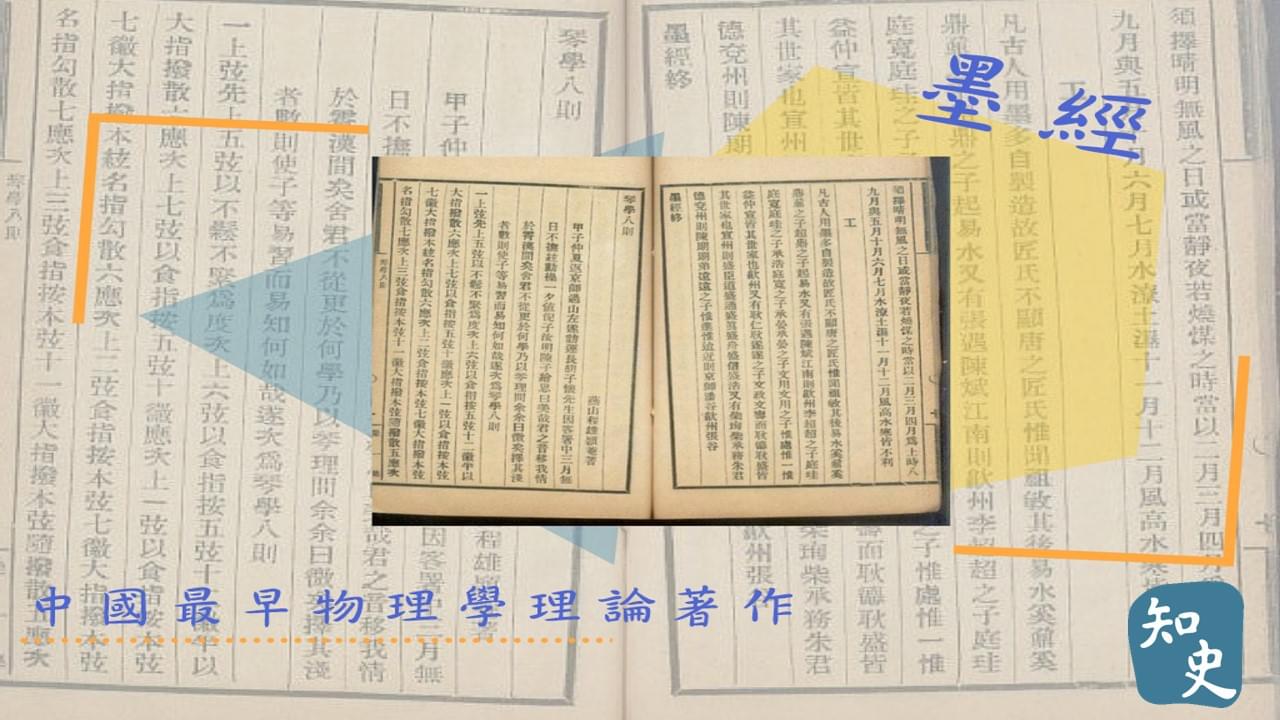 墨經
須擇晴明無風之日或當靜夜若燒煤之時當以二月三月四月為上時八
九月與五月十月六月七月水潦土濕十一月十二月風高水寒皆不利
工
凡古人用墨多自製造故匠氏不顯唐之匠氏惟聞祖敏其後易水奚鼐奚
鼎鼐之子超鼎之子起易水又有張遇陳贇江南則歙州李超超之子庭珪
庭寬庭珪之子承浩庭寬之子承晏承晏之子文用文用之子惟處惟一惟
益仲宣皆其世家也歙州又有耿仁耿遂遂之子文政文壽而耿德耿盛皆
其世家也宣州則盛匡道盛通盛真盛舟盛信盛浩又有柴珣柴承務朱君
德兗州則陳朗朗弟遠遠之子惟進惟迨近則京師潘谷歙州張谷
墨經終
琴學八則
燕山程雄穎菴著
甲子仲夏返京師過山左遂訪運長胡子懷先生因客署中三月無
日不撫絃動操一夕值倪子汝明陳子繪思曰美哉君之音移我情
於霄漢間矣舍君不從更於何學乃以琴理問余余曰微矣擇其淺
者數則使子等易習而易知何如哉遂次為琴學八則
一上弦先上五弦以不鬆不緊為度次上六弦以食指按五弦十一徽半以
大指撥散六應次上七弦以食指按五弦十徽應次上一弦以食指按本弦
七徽大指撥本絃名指勾散六應次上二弦食指按本弦七徽大指撥本弦
名指勾散七應次上三弦食指按本弦十一徽大指撥本弦隨撥散五應次
中國最早物理學理論著作
知史